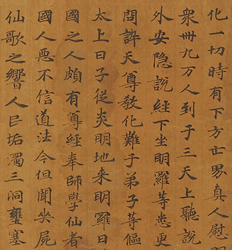 化一切時有下方世界真人慰
衆卌九万人到于三天上聽說
外安隱說經下坐明羅等悉更
問訊天尊教化難弟子等傴
太上曰子從炎明地來明羅曰
國之人頗有尊經奉師學仙者
國人悪不信道法今但聞哭屍
仙歌之響人民垢濁三洞壅塞